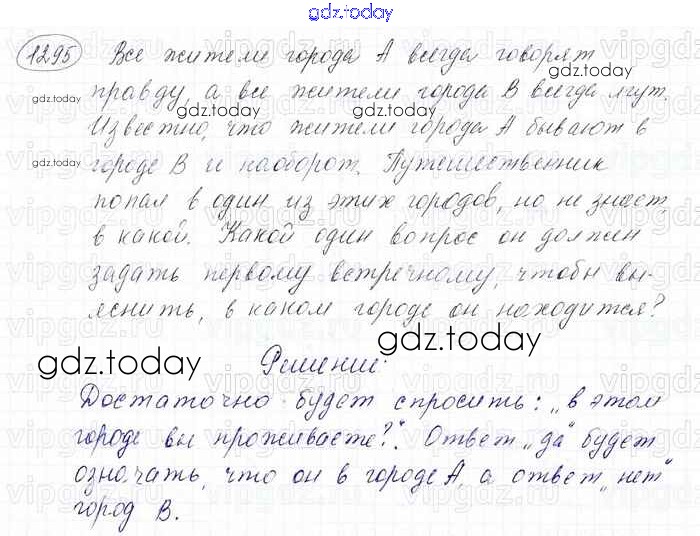 gdz.today
1295 Все жители города А всегда говорят
правду, а все жители города В всегда лгут.
Известно, что жители города А бывают в
городе В и наоборот. Путешественник
попал в один из этих городов, но не знает,
в какой. Какой один вопрос он должен
задать первому встречному, чтобы вы-
яснить, в каком городе он находится?
Решение:
Достаточно будет спросить: „в этом
городе вы проживаете?". Ответ „да" будет
означать, что он в городе А, а ответ „нет"
город В.